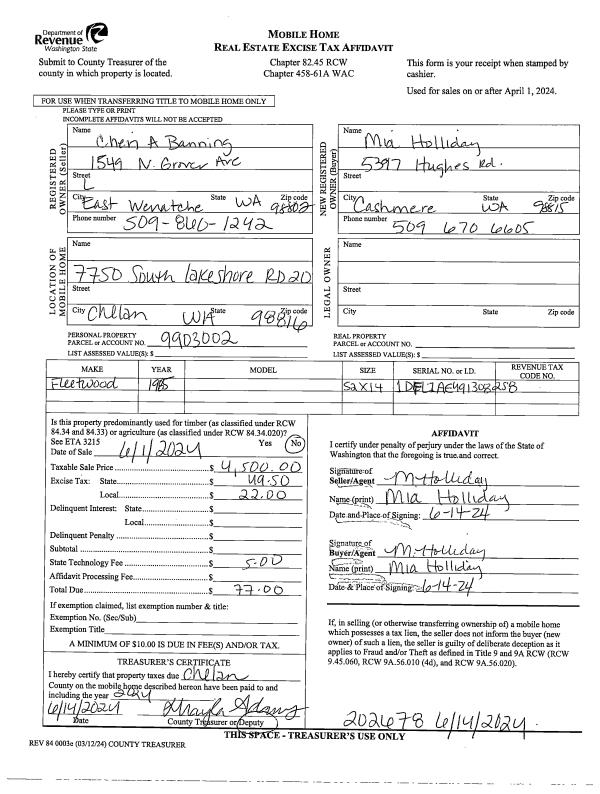 Department of
Revenue
Washington State
MOBILE HOME
REAL ESTATE EXCISE TAX AFFIDAVIT
Submit to County Treasurer of the
county in which property is located.
Chapter 82.45 RCW
Chapter 458-61A WAC
This form is your receipt when stamped by
cashier.
Used for sales on or after April 1, 2024.
FOR USE WHEN TRANSFERRING TITLE TO MOBILE HOME ONLY
PLEASE TYPE OR PRINT
INCOMPLETE AFFIDAVITS WILL NOT BE ACCEPTED
REGISTERED
OWNER (Seller)
Name
Cheri A Banning
1549 N. Grover Ave
Street
City East Wenatche State WA Zip code 98802
Phone number 509-860-1242
NEW REGISTERED
OWNER (Buyer)
Name
Mia Holliday
5397 Hughes Rd.
Street
City Cashmere State WA Zip code 98815
Phone number 509 670 6605
LOCATION OF
MOBILE HOME
Name
7750 South lakeshore RD 20
Street
City Chelan WA State 98816 Zip code
LEGAL OWNER
Name
Street
City State Zip code
PERSONAL PROPERTY
PARCEL or ACCOUNT NO. 9903002
LIST ASSESSED VALUE(S): $
REAL PROPERTY
PARCEL or ACCOUNT NO.
LIST ASSESSED VALUE(S): $
MAKE YEAR MODEL SIZE SERIAL NO. or I.D. REVENUE TAX
CODE NO.
Fleetwood 1985 52X14
Is this property predominantly used for timber (as classified under RCW
84.34 and 84.33) or agriculture (as classified under RCW 84.34.020)?
See ETA 3215 Yes No
Date of Sale 6/1/2024
Taxable Sale Price $ 4,500.00
Excise Tax: State $ 49.50
Local $ 22.00
Delinquent Interest: State $
Local $
Delinquent Penalty $
Subtotal $
State Technology Fee $ 5.00
Affidavit Processing Fee $
Total Due $ 77.00
If exemption claimed, list exemption number & title:
Exemption No. (Sec/Sub)
Exemption Title
A MINIMUM OF $10.00 IS DUE IN FEE(S) AND/OR TAX.
TREASURER'S CERTIFICATE
I hereby certify that property taxes due Chelan
County on the mobile home described hereon have been paid to and
including the year 2024
6/14/2024 Adams
Date County Treasurer or Deputy
AFFIDAVIT
I certify under penalty of perjury under the laws of the State of
Washington that the foregoing is true and correct.
Signature of
Seller/Agent M Holliday
Name (print) Mia Holliday
Date and Place of Signing: 6-14-24
Signature of
Buyer/Agent M. Holliday
Name (print) Mia Holliday
Date & Place of Signing: 6-14-24
If, in selling (or otherwise transferring ownership of) a mobile home
which possesses a tax lien, the seller does not inform the buyer (new
owner) of such a lien, the seller is guilty of deliberate deception as it
applies to Fraud and/or Theft as defined in Title 9 and 9A RCW (RCW
9.45.060, RCW 9A.56.010 (4d), and RCW 9A.56.020).
202678 6/14/2024
THIS SPACE - TREASURER'S USE ONLY
REV 84 0003e (03/12/24) COUNTY TREASURER